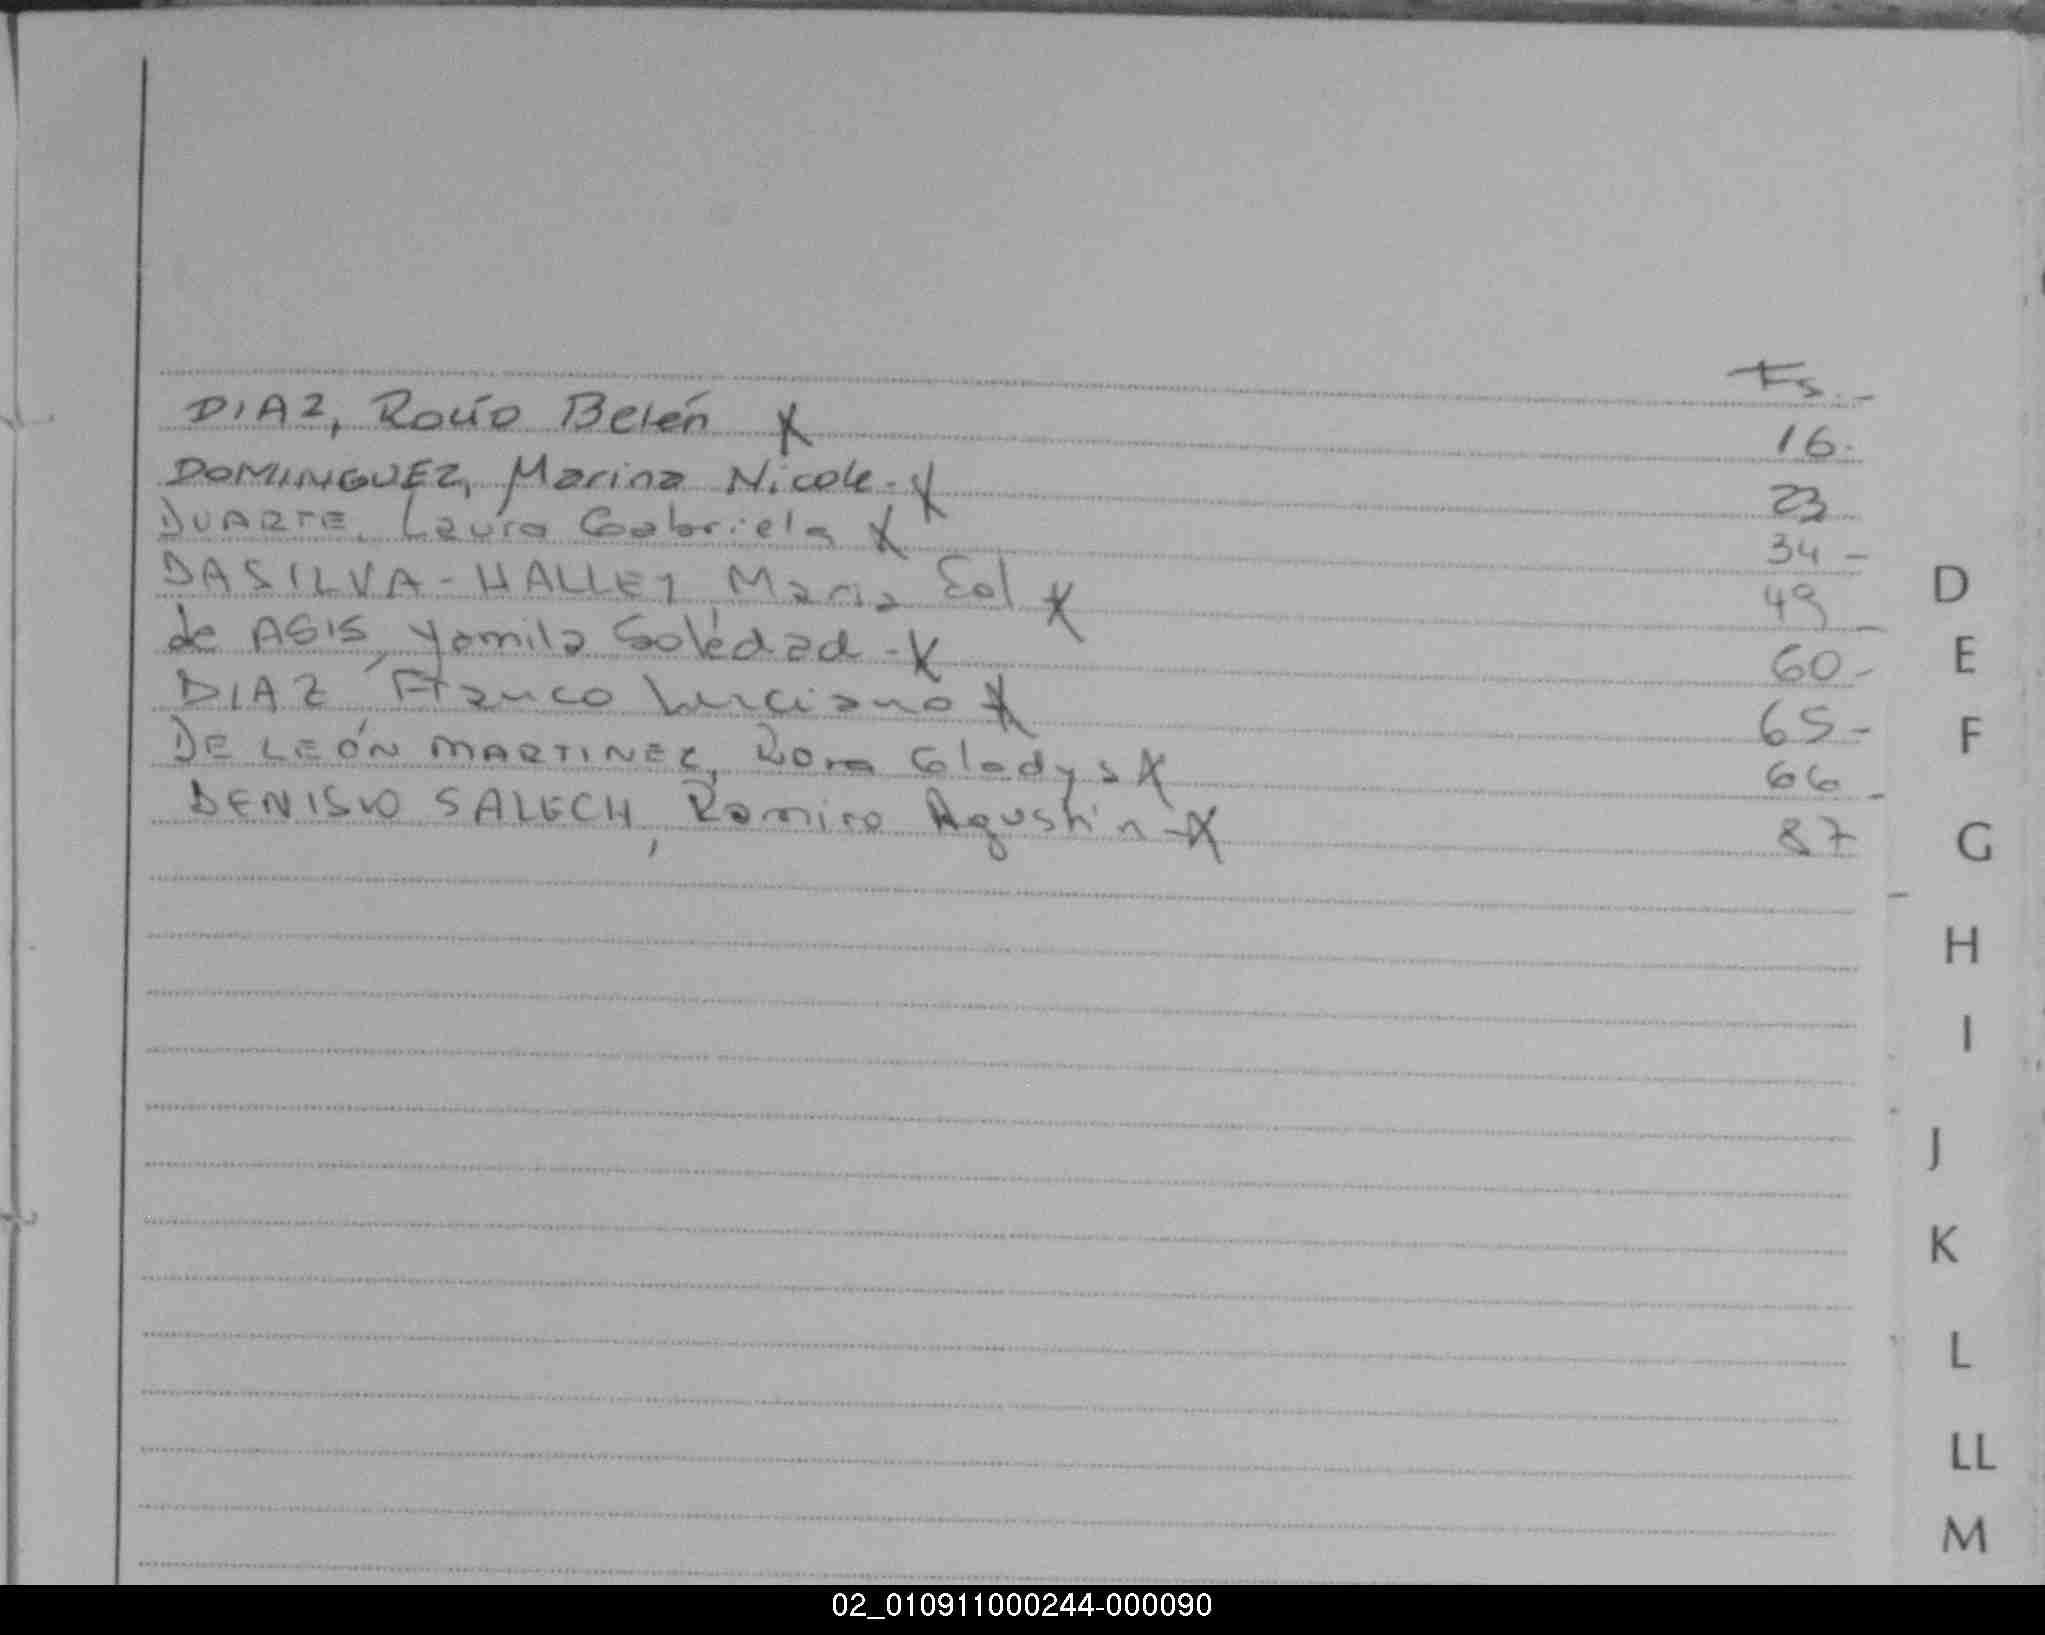 Fs.-
DIAZ, Rocío Belén X 16.
DOMINGUEZ, Marina Nicole - X 23
DUARTE, Laura Gabriela X 34 -
DASILVA - HALLEY Maria Sol X 49 -
de ASIS, Yamila Soledad - X 60 -
DIAZ, Franco Luciano X 65 -
DE LEÓN MARTINEZ, Rosa Gladys X 66 -
DENISIO SALECH, Ramiro Agustín - X 87
D
E
F
G
H
I
J
K
L
LL
M
02_010911000244-000090